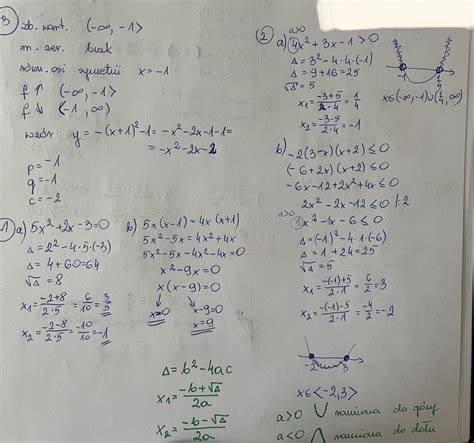 ③ zb. wart. (-∞, -1>
m. zer. brak
równ. osi symetrii x = -1
f ↑ (-∞, -1>
f ↓ <-1, ∞)
wzór y = -(x+1)²-1 = -x²-2x-1-1=
= -x²-2x-2
p = -1
q = -1
c = -2
① a) 5x²+2x-3=0
Δ = 2²-4·5·(-3)
Δ = 4+60=64
√Δ = 8
x₁ = (-2+8)/(2·5) = 6/10 = 3/5
x₂ = (-2-8)/(2·5) = -10/10 = -1
b) 5x(x-1) = 4x(x+1)
5x²-5x = 4x²+4x
5x²-5x-4x²-4x=0
x²-9x=0
x(x-9)=0
x=0 x-9=0
x=9
Δ = b²-4ac
x₁ = (-b+√Δ)/2a
x₂ = (-b-√Δ)/2a
② a>0
a) 4x²+3x-1>0
Δ = 3²-4·4·(-1)
Δ = 9+16=25
√Δ = 5
x₁ = (-3+5)/(2·4) = 1/4
x₂ = (-3-5)/(2·4) = -1
-1 1/4
x∈(-∞,-1)∪(1/4, ∞)
b) -2(3-x)(x+2) ≤ 0
(-6+2x)(x+2) ≤ 0
-6x-12+2x²+4x ≤ 0
2x²-2x-12 ≤ 0 /:2
a>0
1x²-x-6 ≤ 0
Δ = (-1)²-4·1·(-6)
Δ = 1+24=25
√Δ = 5
x₁ = (-(-1)+5)/(2·1) = 6/2 = 3
x₂ = (-(-1)-5)/(2·1) = -4/2 = -2
-2 3
x∈<-2,3>
a>0 ramiona do góry
a<0 ramiona do dołu